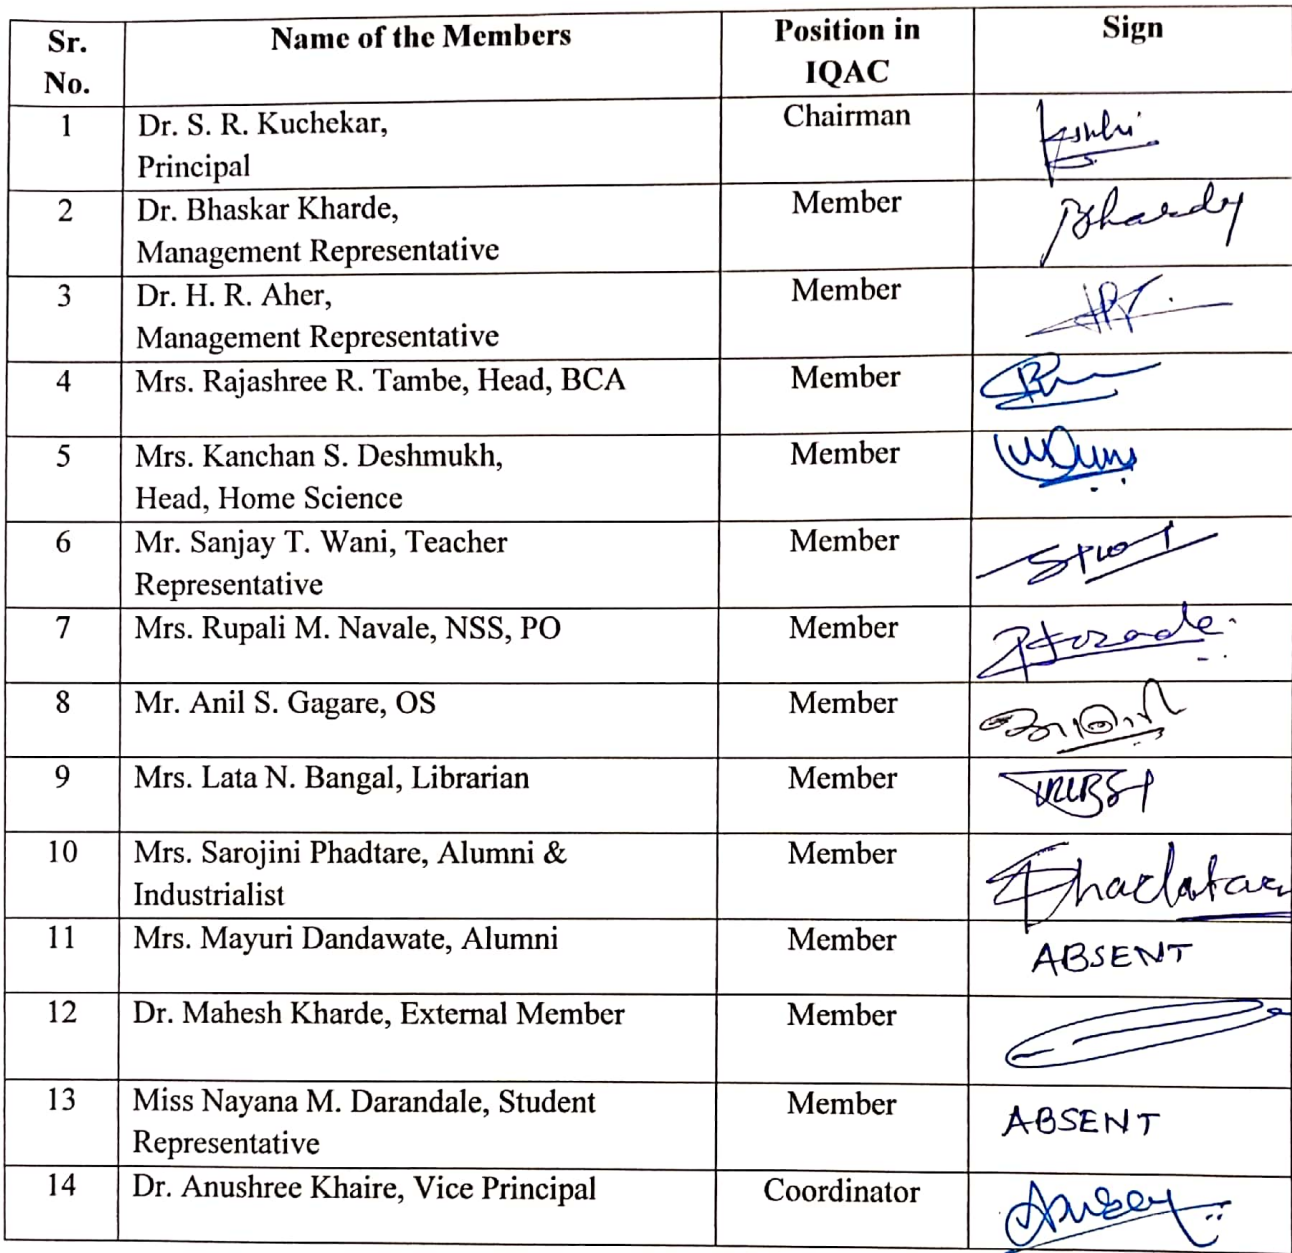 Sr. No. Name of the Members Position in IQAC Sign
1 Dr. S. R. Kuchekar, Chairman
Principal
2 Dr. Bhaskar Kharde, Member
Management Representative
3 Dr. H. R. Aher, Member
Management Representative
4 Mrs. Rajashree R. Tambe, Head, BCA Member
5 Mrs. Kanchan S. Deshmukh, Member
Head, Home Science
6 Mr. Sanjay T. Wani, Teacher Member
Representative
7 Mrs. Rupali M. Navale, NSS, PO Member
8 Mr. Anil S. Gagare, OS Member
9 Mrs. Lata N. Bangal, Librarian Member
10 Mrs. Sarojini Phadtare, Alumni & Member
Industrialist
11 Mrs. Mayuri Dandawate, Alumni Member ABSENT
12 Dr. Mahesh Kharde, External Member Member
13 Miss Nayana M. Darandale, Student Member ABSENT
Representative
14 Dr. Anushree Khaire, Vice Principal Coordinator